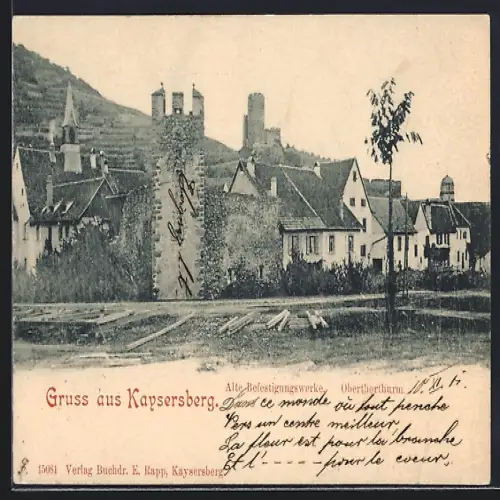 Gruss aus Kaysersberg.
Alte Befestigungswerke. Oberthorthurm.
Dans ce monde où tout penche
Vers un' centre meilleur,
La fleur est pour la branche
Et l'------pour le coeur.
15084 Verlag Buchdr. E. Rapp, Kaysersberg.